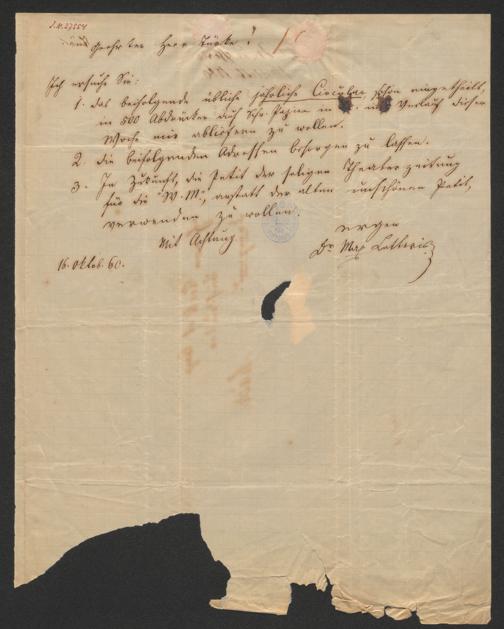 J.N. 27554
Geehrter Herr Türke!
Ich ersuche Sie:
1. das beifolgende übliche jährliche Circular schön ausgetheilt,
in 500 Abdrucken auf Papier in Verlauf dieser
Woche mir abliefern zu wollen.
2. die beifolgenden Adressen besorgen zu lassen.
3. In Zukunft, die Petit der seligen Theaterzeitung
für die "W. M.", anstatt der alten unschönen Petit,
verwenden zu wollen.
Mit Achtung
ergeb
Dr. Max Letteris
16. Oktob. 60.